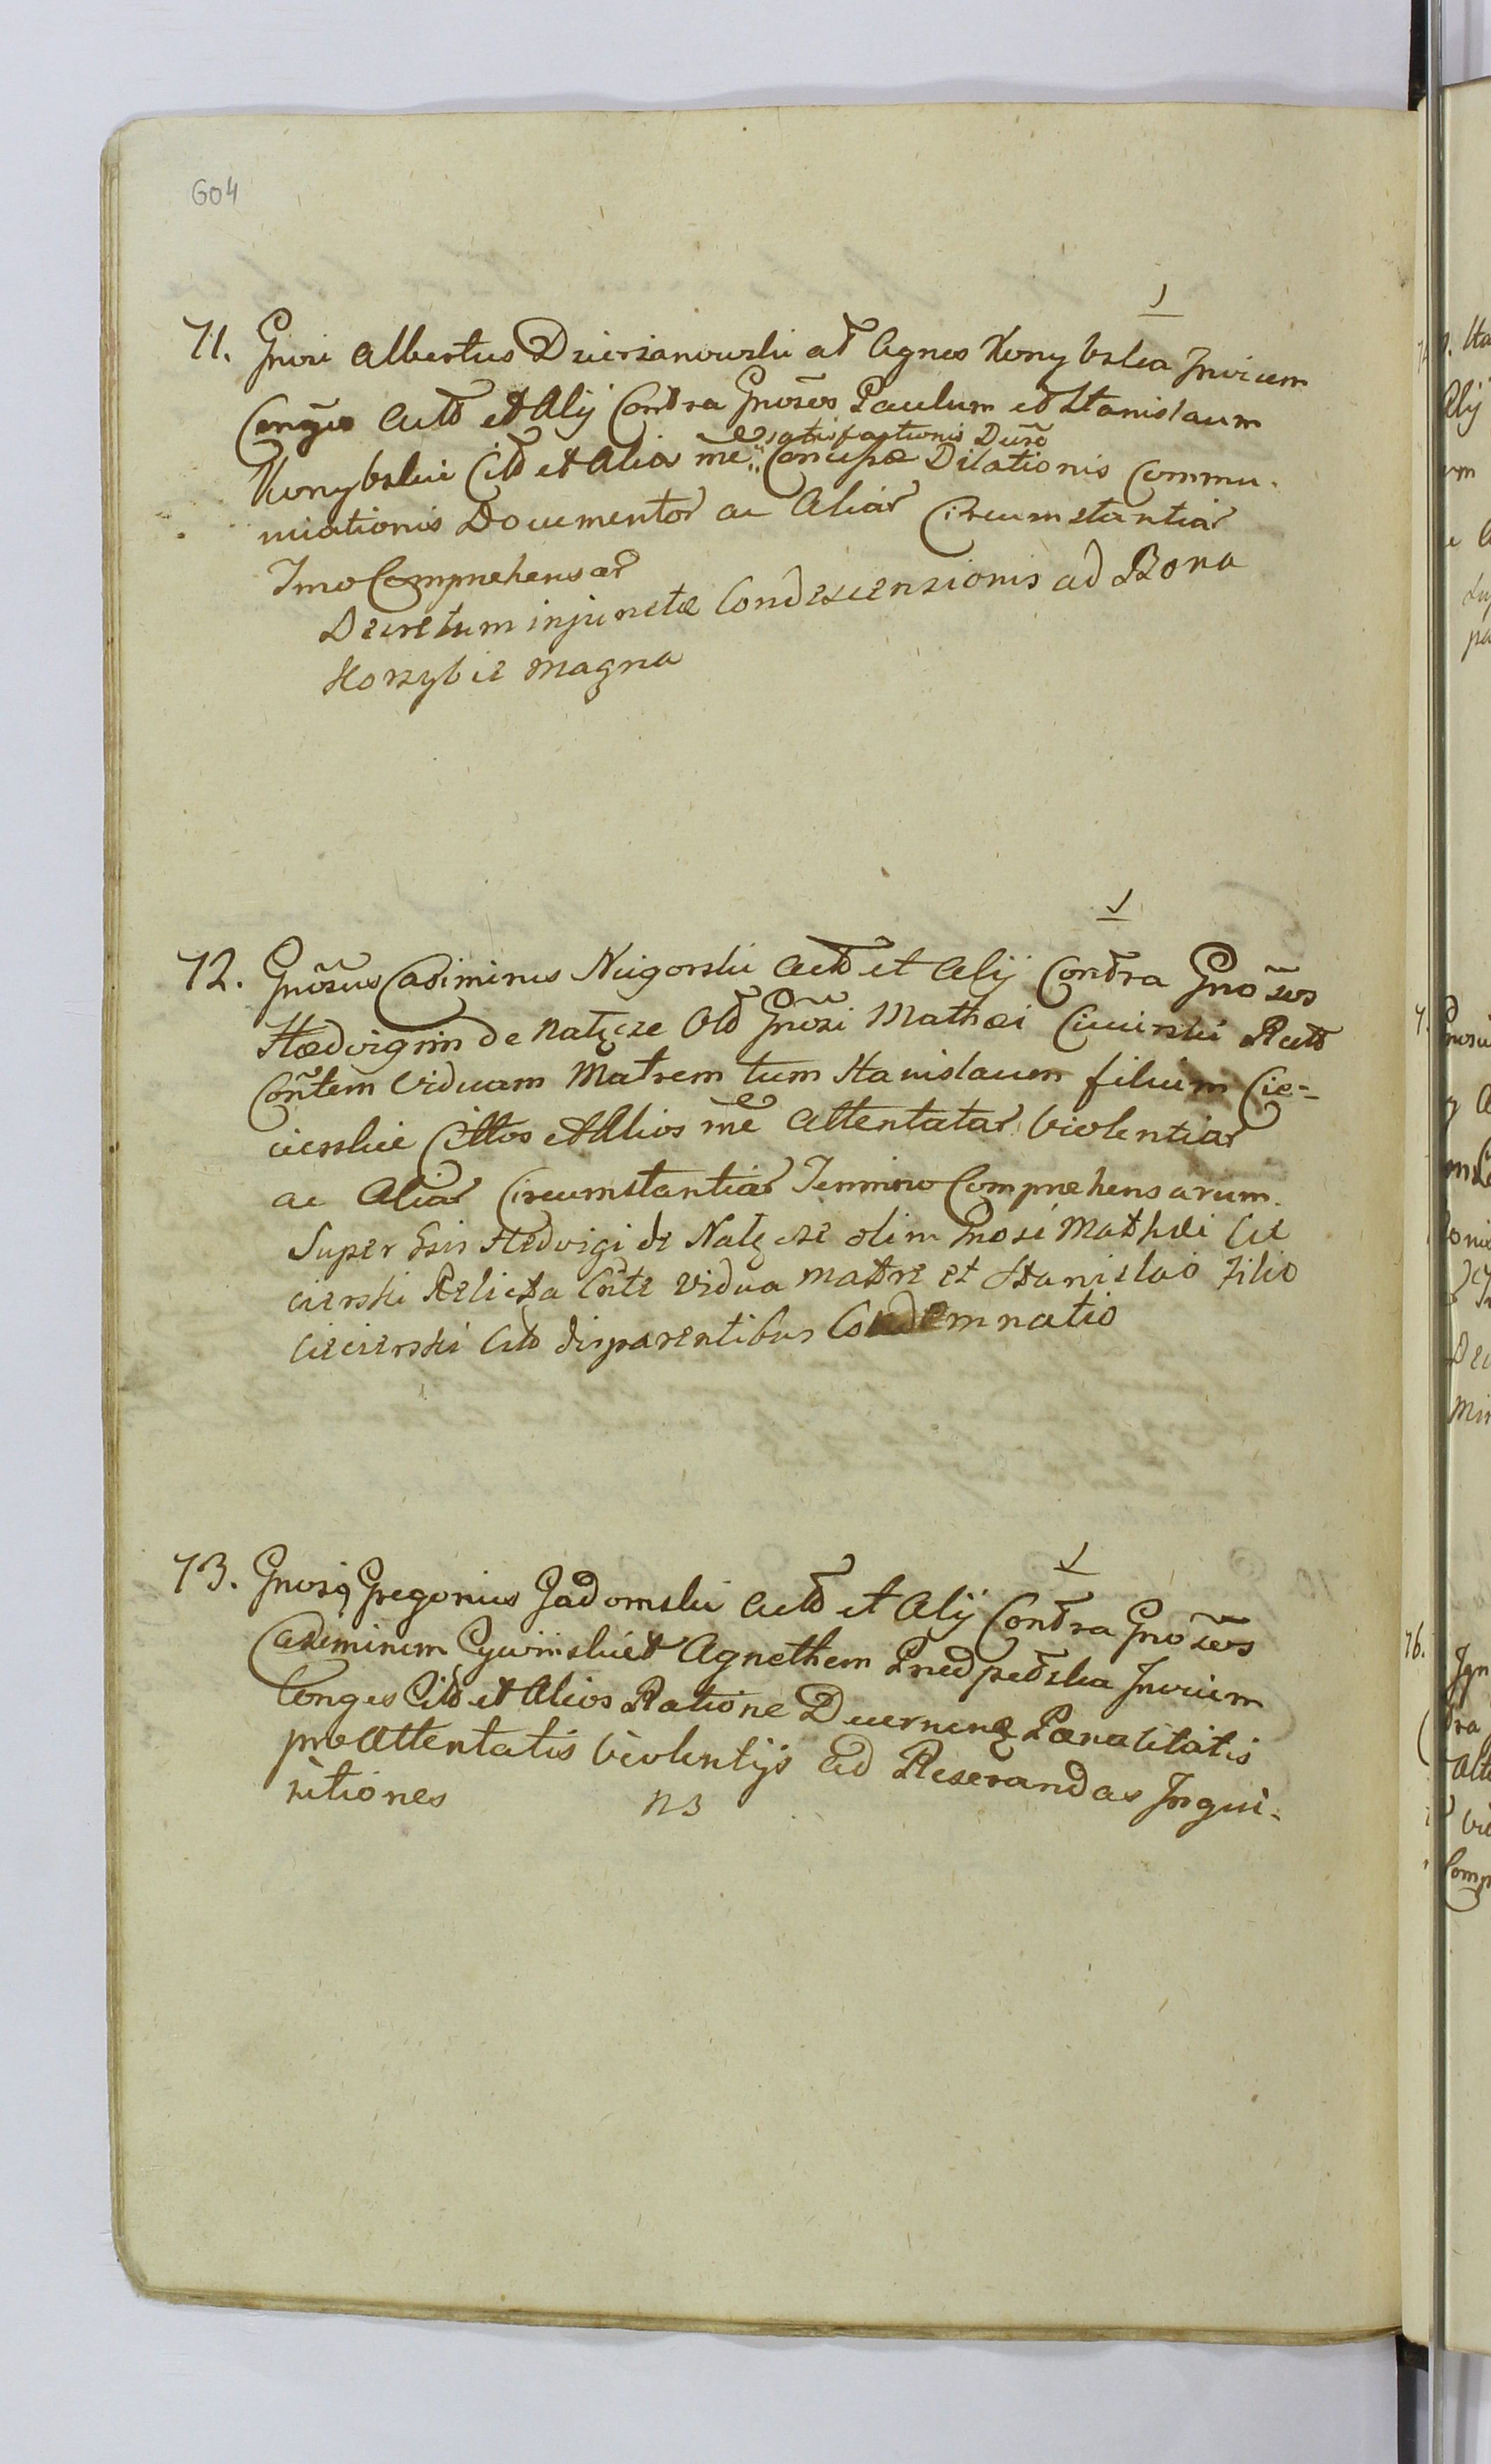 604
71. Gnosi Albertus Dzierzanowski at Agnes Konybska Invicem
Conges Actō et Alij Contra Gnosos Paulum et Stanislaum
satisfactionis Decro
Konybskie Citō et Alios rñe Concessæ Dilationis Commu-
nicationis Documentor ac Aliar Circumstantiar
Tmo Comprehensar
Decretum injunctæ Condescensionis ad Bona
Korzybie Magna
72. Gnosus Casimirus Nieigorski Actō et Alij Contra Gnosos
Hædvigim de Natęcze Olō Gnosi Mathæi Ciecierski Relctō
Conřtem Viduam Matrem tum Stanislaum filium Cie-
cierskie Cittos et Alios rñe Attentatar Violentiar
ac Aliar Circumstantiar Termino Comprehensarum.
Super Gsis Hedvigi de Natęcze olim Gnosi Mathæi Cie
cierski Relicta Cnte Vidua matre et Stanislao Filio
Ciecierski Citō disparentibus Condemnatio
73. Gnosq Gregorius Jadomski Actō et Alij Contra Gnosos
Casimirum Cywinski et Agnethem Przedpełska Invicem
Conges Citō et Alios Ratione Decernenę Pœnalitatis
pro Attentatis Violentijs ad Reserandas Inqui-
sitiones
NB